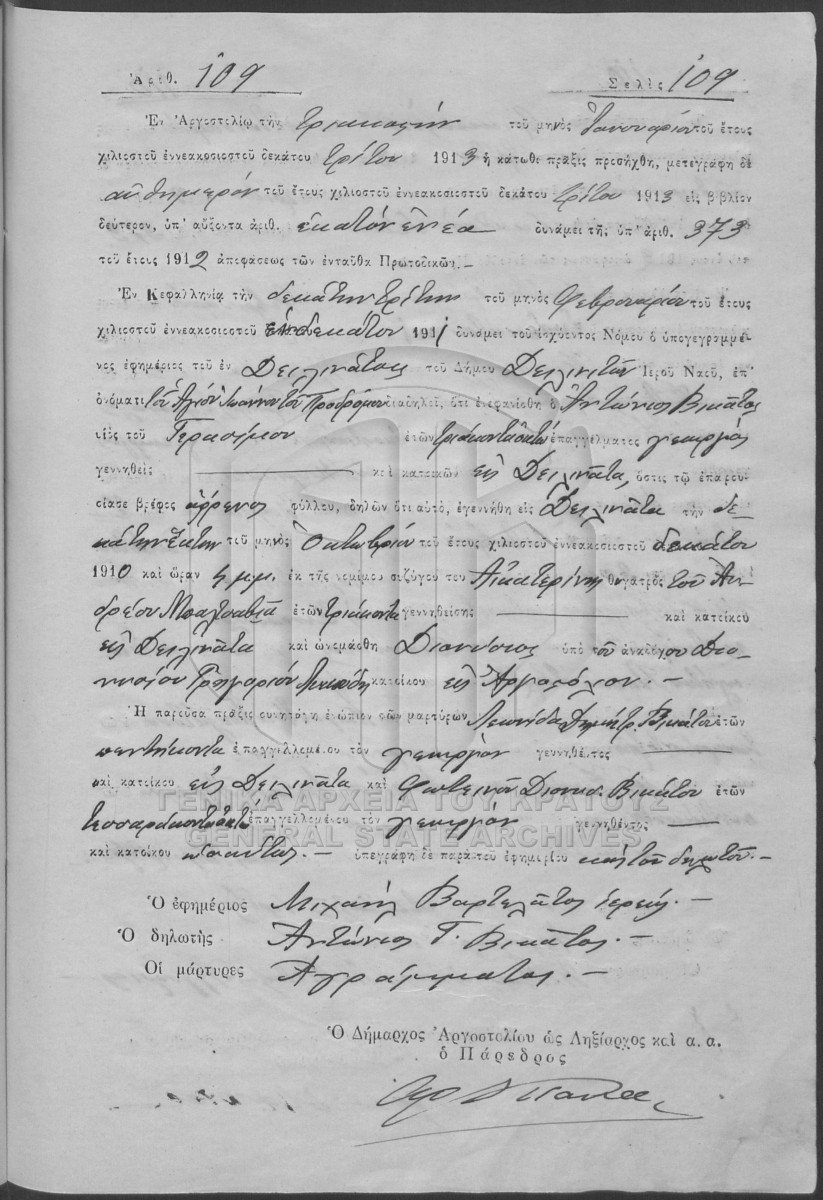 Ἀριθ. 109 Σελὶς 109
Ἐν Ἀργοστολίῳ τὴν τριακοστὴν τοῦ μηνὸς Ἰανουαρίου τοῦ ἔτους
χιλιοστοῦ ἐννεακοσιοστοῦ δεκάτου τρίτου 1913 ἡ κάτωθι πρᾶξις προσήχθη, μετεγράφη δὲ
αὐθημερὸν τοῦ ἔτους χιλιοστοῦ ἐννεακοσιοστοῦ δεκάτου τρίτου 1913 εἰς βιβλίον
δεύτερον, ὑπ' αὔξοντα ἀριθ. ἑκατὸν ἐννέα δυνάμει τῆς ὑπ' ἀριθ. 373
τοῦ ἔτους 1912 ἀποφάσεως τῶν ἐνταῦθα Πρωτοδικῶν.—
Ἐν Κεφαλληνίᾳ τὴν δεκάτην τρίτην τοῦ μηνὸς Φεβρουαρίου τοῦ ἔτους
χιλιοστοῦ ἐννεακοσιοστοῦ ἑνδεκάτου 1911 δυνάμει τοῦ ἰσχύοντος Νόμου ὁ ὑπογεγραμμέ-
νος ἐφημέριος τοῦ ἐν Δειλινάτοις τοῦ Δήμου Δειλινάτων Ἱεροῦ Ναοῦ, ἐπ'
ὀνόματι τοῦ Ἁγίου Ἰωάννου τοῦ Προδρόμου διαδηλοῖ, ὅτι ἐνεφανίσθη ὁ Ἀντώνιος Βικᾶτος
υἱὸς τοῦ Γερασίμου ἐτῶν τριάκοντα ὀκτὼ ἐπαγγέλματος γεωργὸς
γεννηθεὶς — καὶ κατοικῶν εἰς Δειλινᾶτα, ὅστις τῷ ἐπαρου-
σίασε βρέφος ἄρρενος φύλλου, δηλῶν ὅτι αὐτό, ἐγεννήθη εἰς Δειλινᾶτα τὴν δε-
κάτην ἕκτην τοῦ μηνὸς Ὀκτωβρίου τοῦ ἔτους χιλιοστοῦ ἐννεακοσιοστοῦ δεκάτου
1910 καὶ ὥραν 4 μ.μ. ἐκ τῆς νομίμου συζύγου του Αἰκατερίνης θυγατρὸς τοῦ Ἀν-
δρέου ἐτῶν τριάκοντα γεννηθείσης — καὶ κατοίκου
εἰς Δειλινᾶτα καὶ ὠνομάσθη Διονύσιος ὑπὸ τοῦ ἀναδόχου Διο-
νυσίου Γρηγορίου κατοίκου εἰς Ἀργοστόλιον.—
Ἡ παροῦσα πρᾶξις συνητάγη ἐνώπιον τῶν μαρτύρων Λεωνίδα Δημητρ. Βικάτου ἐτῶν
πεντήκοντα ἐπαγγελλομένου τὸν γεωργὸν γεννηθέντος —
καὶ κατοίκου εἰς Δειλινᾶτα καὶ Φωτεινοῦ Διονυσ. Βικάτου ἐτῶν
τεσσαράκοντα ὀκτὼ ἐπαγγελλομένου τὸν γεωργὸν γεννηθέντος —
καὶ κατοίκου ὡσαύτως.— ὑπεγράφη δὲ παρὰ τοῦ ἐφημερίου καὶ τοῦ δηλωτοῦ.—
Ὁ ἐφημέριος Μιχαὴλ Βαρτελᾶτος ἱερεύς.—
Ὁ δηλωτὴς Ἀντώνιος Γ. Βικᾶτος.—
Οἱ μάρτυρες Ἀγράμματοι.—
Ὁ Δήμαρχος Ἀργοστολίου ὡς Ληξίαρχος καὶ α. α.
ὁ Πάρεδρος
ΓΕΝΙΚΑ ΑΡΧΕΙΑ ΤΟΥ ΚΡΑΤΟΥΣ
GENERAL STATE ARCHIVES